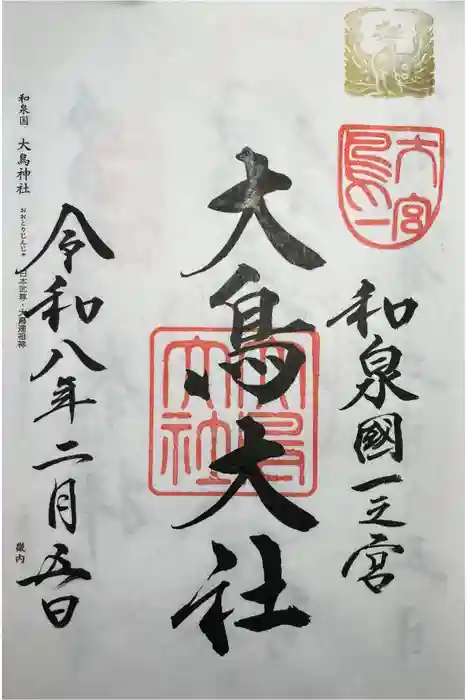 和泉國一之宮
大鳥大社
令和八年二月五日
大鳥一宮
大鳥大社
和泉国 大鳥神社
おおとりじんじゃ
日本武尊・大鳥連祖神
畿内